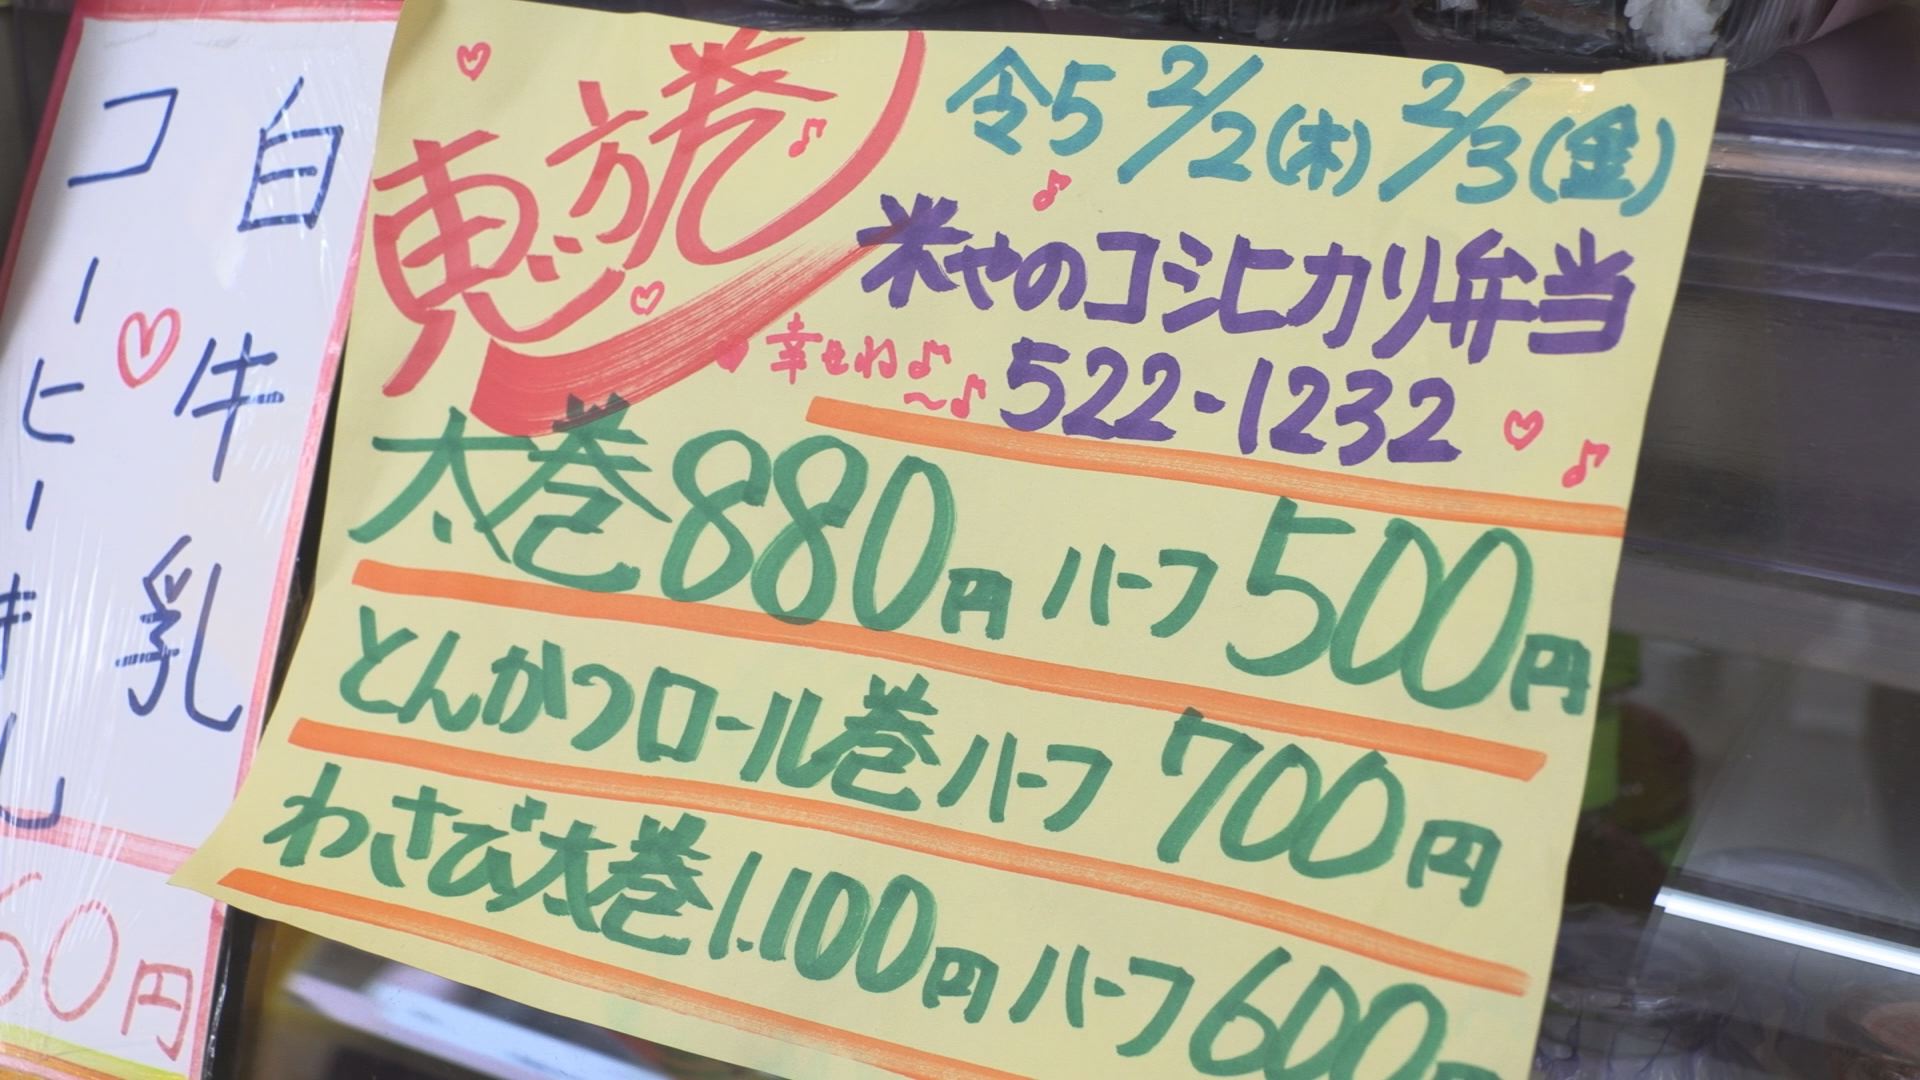 恵方巻
令5 2/2(木) 2/3(金)
米やのコシヒカリ弁当
幸せね〜
522-1232
太巻880円 ハーフ500円
とんかつロール巻ハーフ700円
わさび太巻1.100円 ハーフ600円
白牛乳
コーヒー
60円